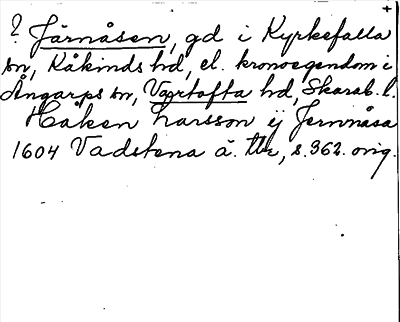 ? Järnåsen, gd i Kyrkefalla +
sn, Kåkinds hd, el. kronoegendom i
Ångarps sn, Vartofta hd, Skarab. l.
Håken Larsson ij Jernnåsa
1604 Vadstena ä. tbr, s. 362. orig.